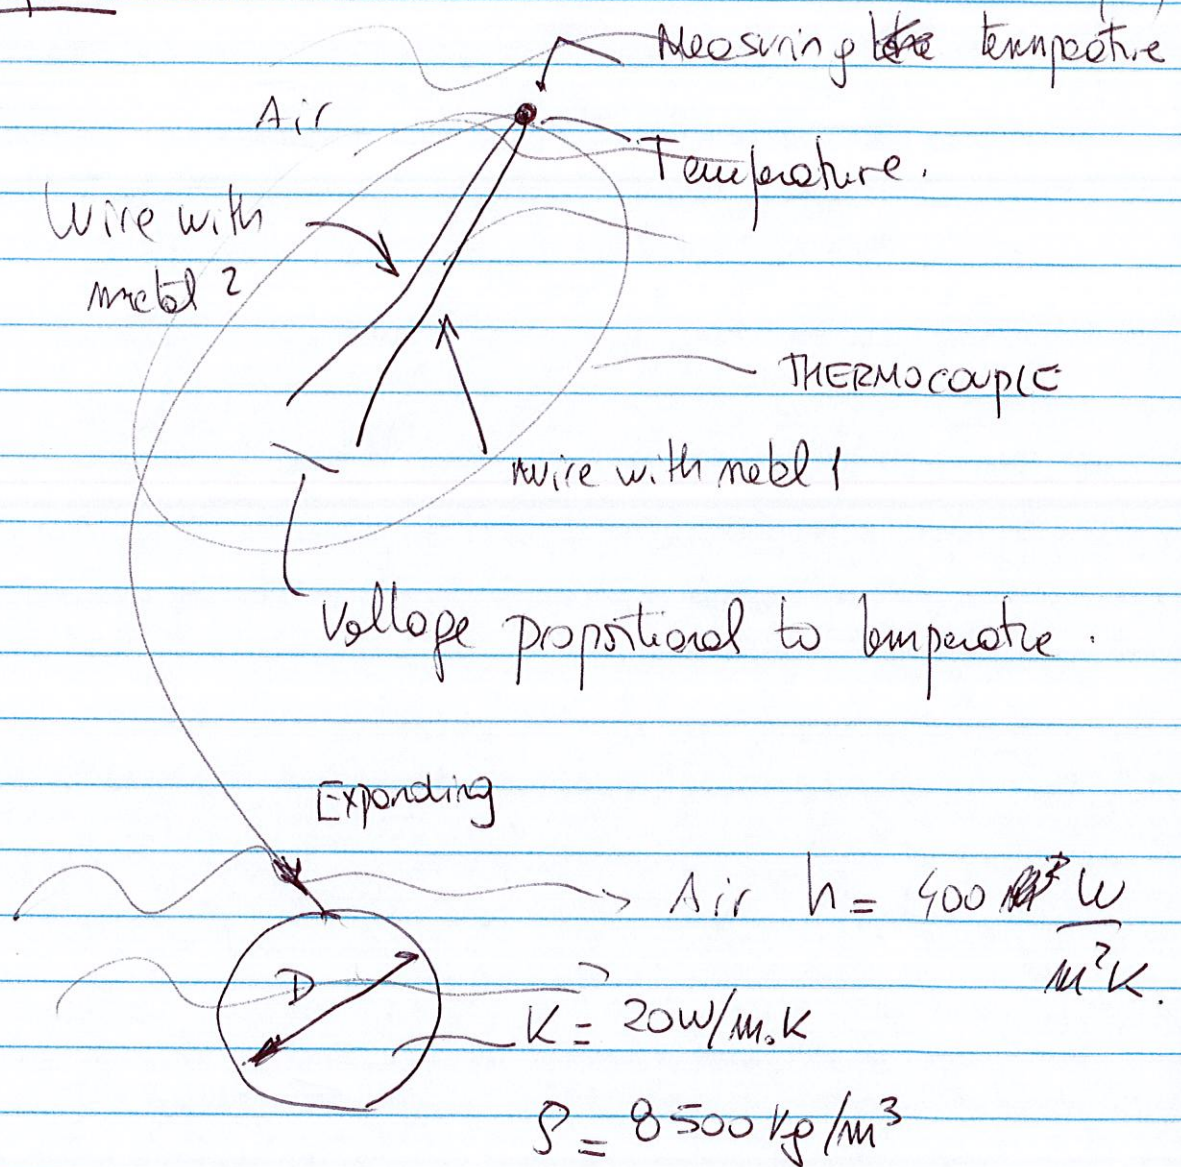 Measuring temperature
Air
Temperature.
Wire with
metal 2
THERMOCOUPLE
wire with metal 1
Voltage proportional to temperature.
Expanding
Air h = 400 W
m²K.
D
K = 20W/m.K
ρ = 8500 kg/m³